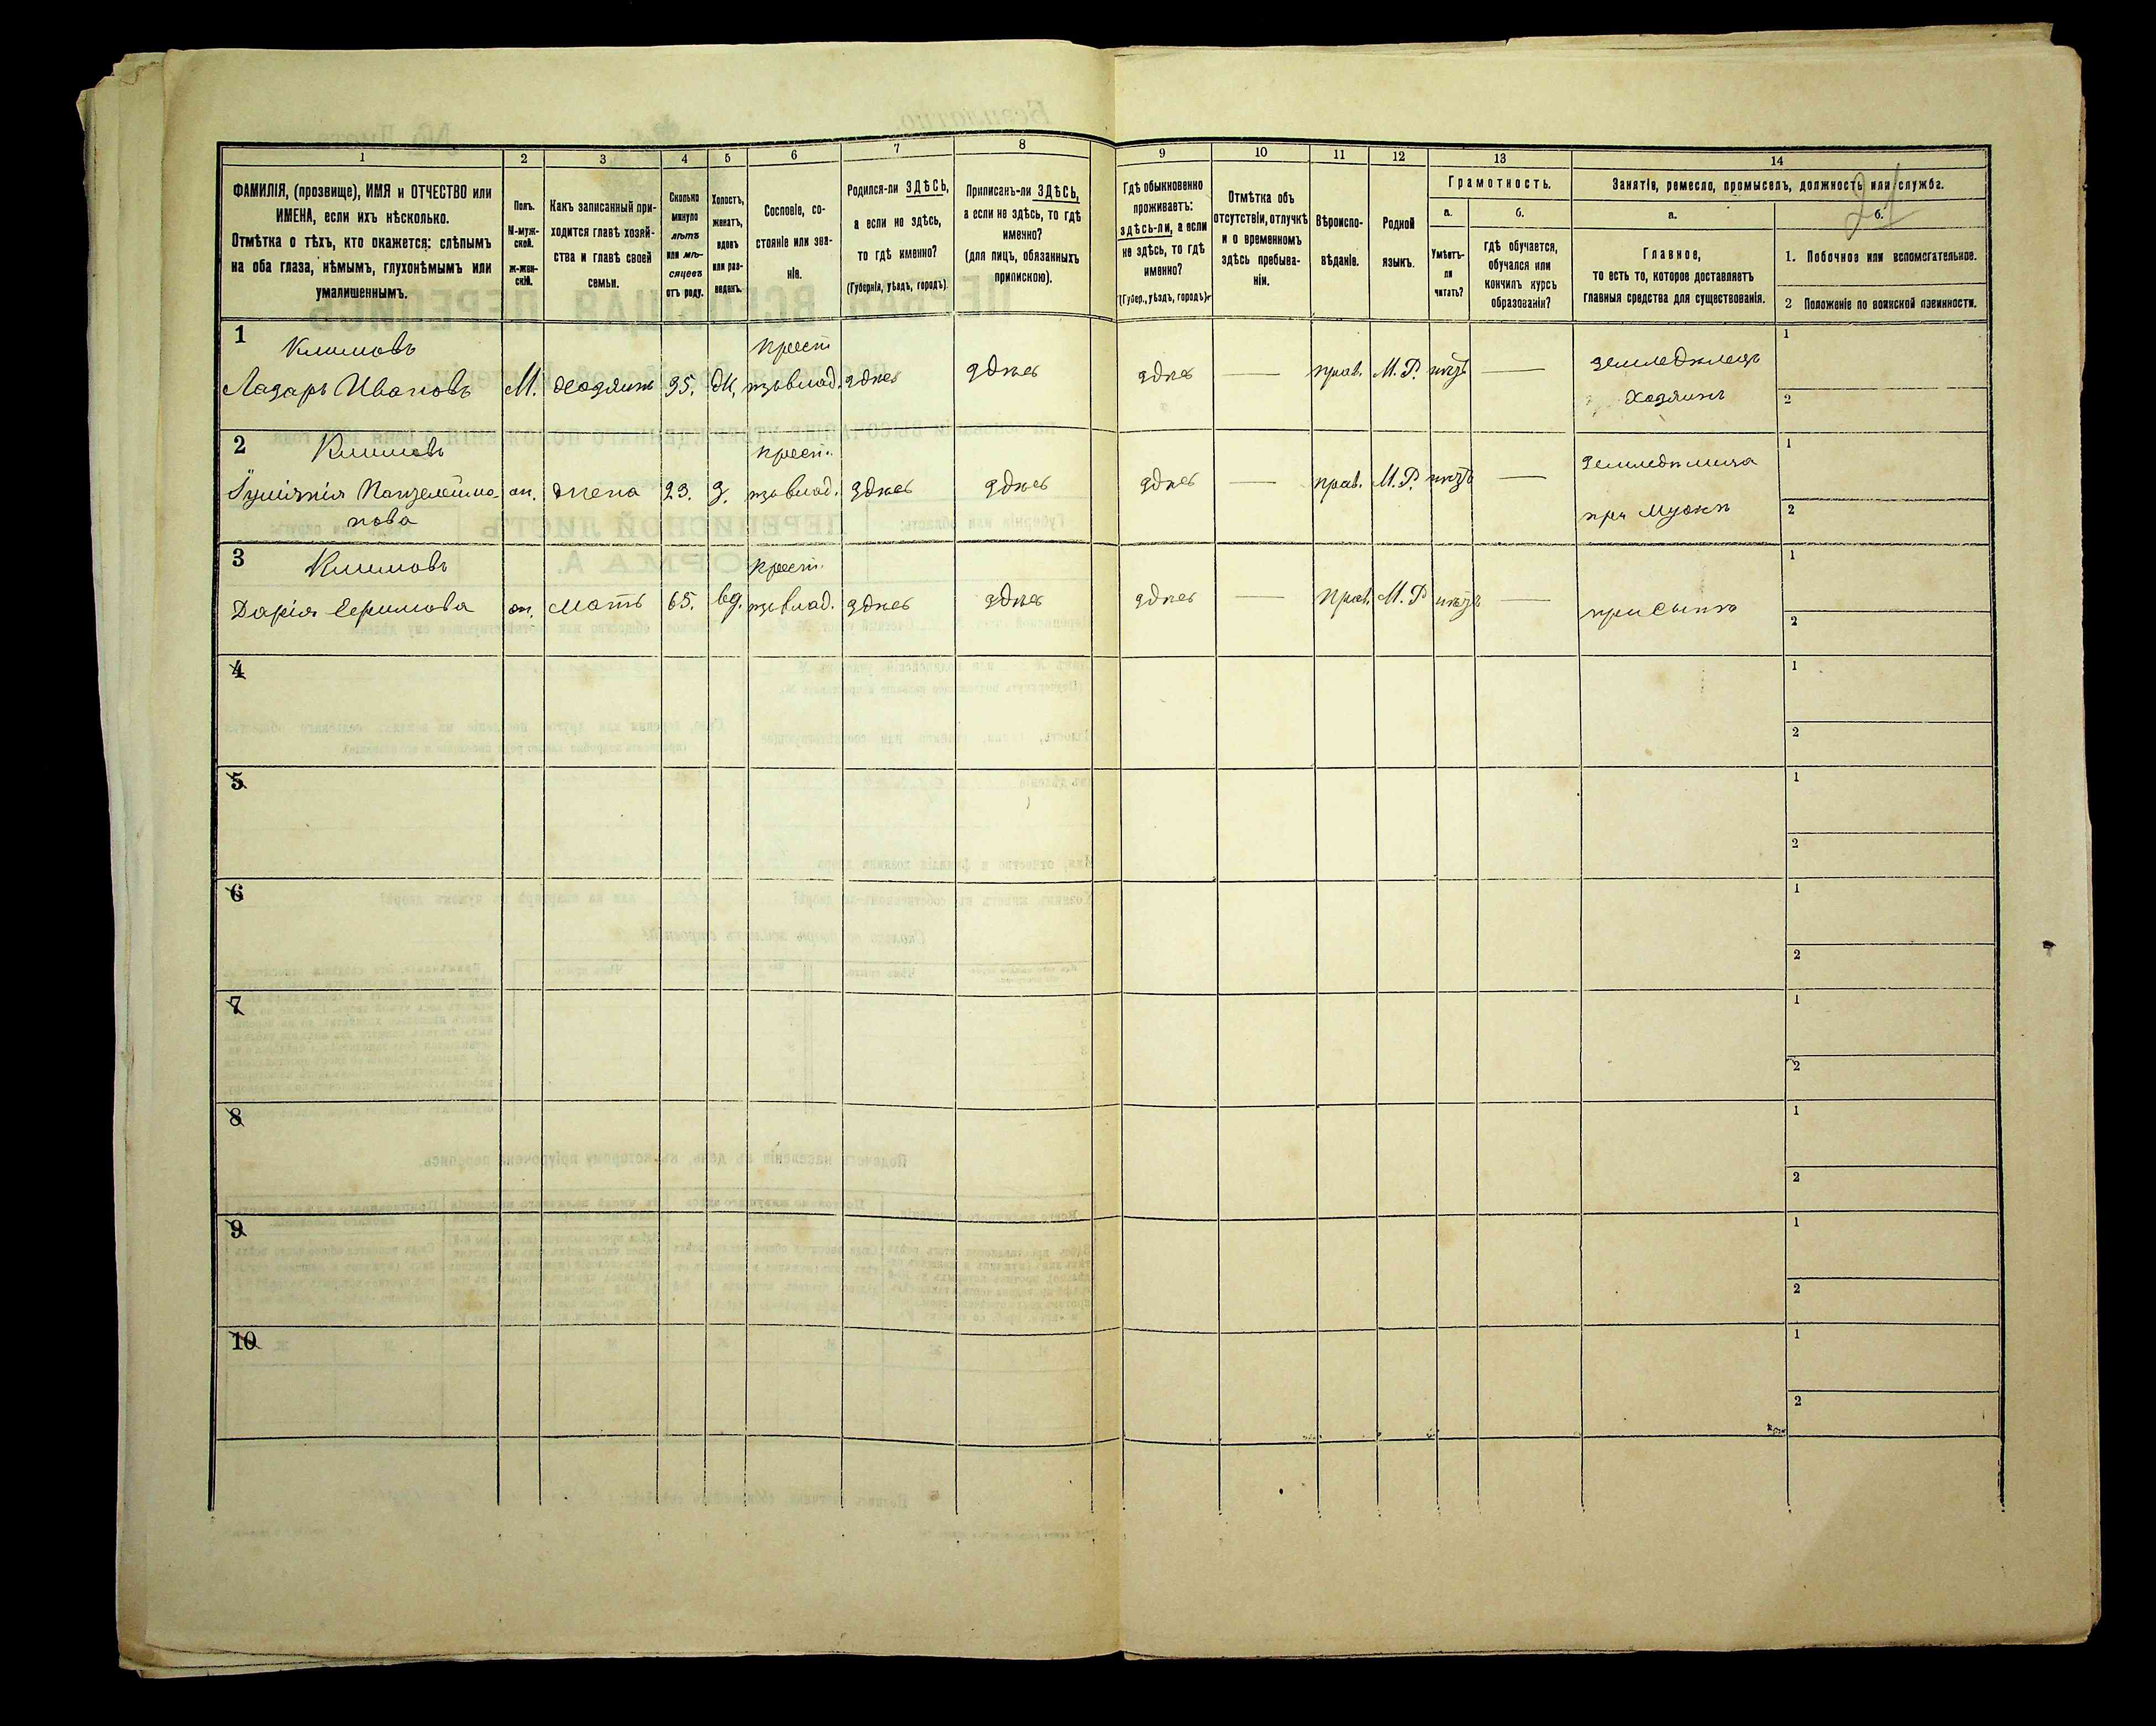 1 2 3 4 5 6 7 8 9 10 11 12 13 14
ФАМИЛІЯ, (прозвище), ИМЯ и ОТЧЕСТВО или
ИМЕНА, если ихъ нѣсколько.
Отмѣтка о тѣхъ, кто окажется: слѣпымъ
на оба глаза, нѣмымъ, глухонѣмымъ или
умалишеннымъ.
Полъ.
М-муж-
ской.
ж-жен-
скій.
Какъ записанный при-
ходится главѣ хозяй-
ства и главѣ своей
семьи.
Сколько
минуло
лѣтъ
или мѣ-
сяцевъ
отъ роду.
Холостъ,
женатъ,
вдовъ
или раз-
веденъ.
Сословіе, со-
стояніе или зва-
ніе.
Родился-ли ЗДѢСЬ,
а если не здѣсь,
то гдѣ именно?
(Губернія, уѣздъ, городъ).
Приписанъ-ли ЗДѢСЬ,
а если не здѣсь, то гдѣ
именно?
(для лицъ, обязанныхъ
припискою).
Гдѣ обыкновенно
проживаетъ:
здѣсь-ли, а если
не здѣсь, то гдѣ
именно?
(Губер., уѣздъ, городъ).
Отмѣтка объ
отсутствіи, отлучкѣ
и о временномъ
здѣсь пребыва-
ніи.
Вѣроиспо-
вѣданіе.
Родной
языкъ.
Грамотность.
а.
Умѣетъ-
ли
читать?
б.
гдѣ обучается,
обучался или
кончилъ курсъ
образованія?
Занятіе, ремесло, промыселъ, должность или служба.
21
а.
Главное,
то есть то, которое доставляетъ
главныя средства для существованія.
б.
1. Побочное или вспомогательное.
2 Положеніе по воинской повинности.
1 Климовъ крест 1
Лазарь Ивановъ М. хозяинъ 35. ж. здѣсь здѣсь здѣсь — прав. М.Р. нѣтъ — земледѣлецъ
Хозяинъ 2
2 Климовъ крест. 1
ж. жена 29. з. здѣсь здѣсь здѣсь — прав. М.Р. нѣтъ — при Мужѣ 2
3 Климовъ крест. 1
Дарія Ефимова ж. мать 65. вд. здѣсь здѣсь здѣсь — прав. М.Р. нѣтъ — при сынѣ 2
4 1
2
5 1
2
6 1
2
7 1
2
8 1
2
9 1
2
10 1
2